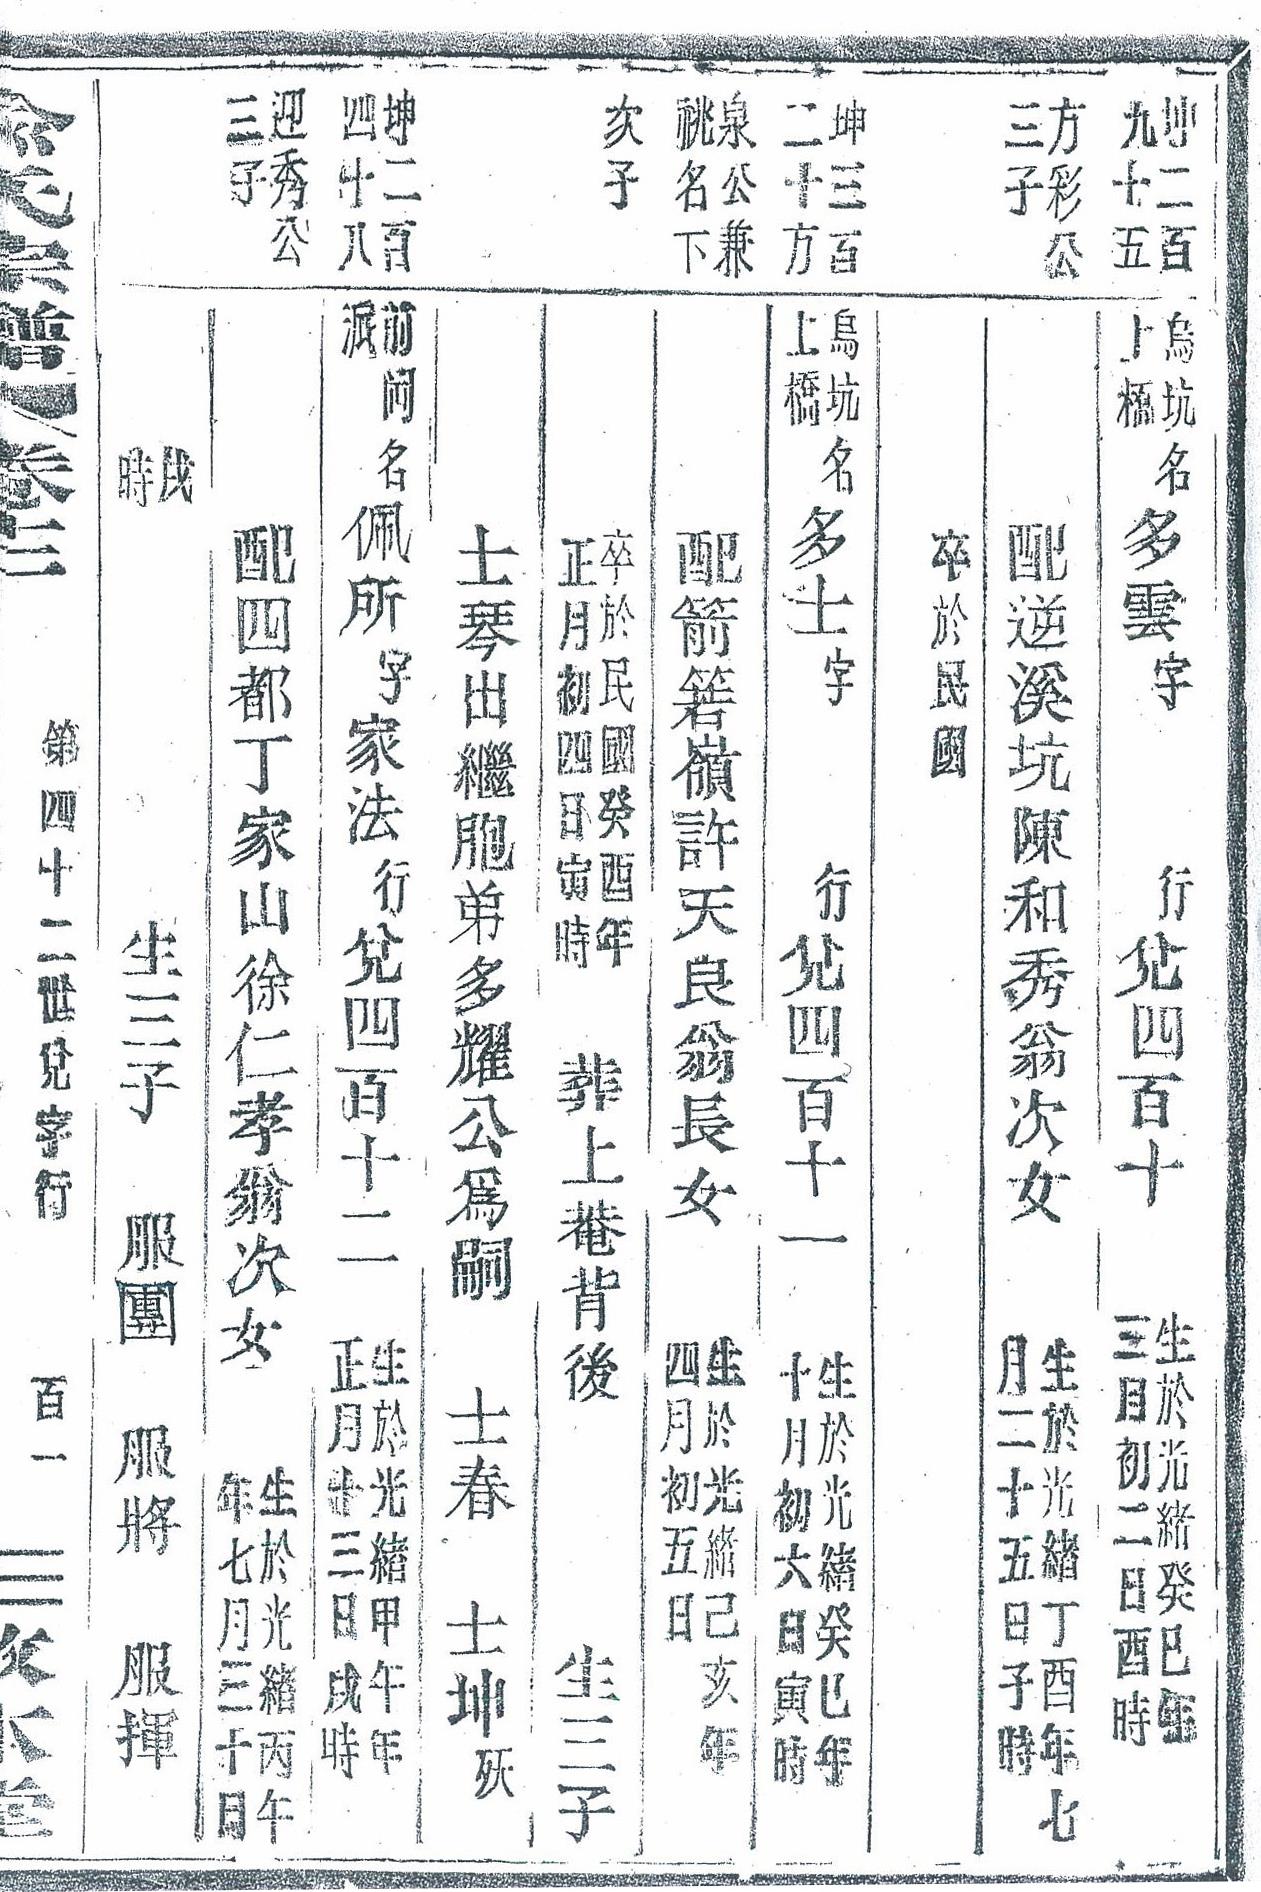 坤二百
九十五
方彩公
三子
烏坑
上橋
名多雲字 行兌四百十
生於光緒癸巳年
三月初二日酉時
配逆溪坑陳和秀翁次女
生於光緒丁酉年七
月二十五日子時
卒於民國
坤三百
二十方
泉公兼
祧名下
次子
烏坑
上橋
名多士字 行兌四百十一
生於光緒癸巳年
十月初六日寅時
配箭箬嶺許天良翁長女
生於光緒己亥年
四月初五日
卒於民國癸酉年
正月初四日寅時
葬上菴背後 生三子
士琴出繼胞弟多耀公為嗣 士春 士坤殀
坤二百
四十八
迎秀公
三子
前門
派
名佩所字家法行兌四百十二
生於光緒甲午年
正月廿三日戌時
配四都丁家山徐仁孝翁次女
生於光緒丙午
年七月三十日
戌
時
生三子 服團 服將 服揮
宗譜 卷三
第四十二世兌字行
百一